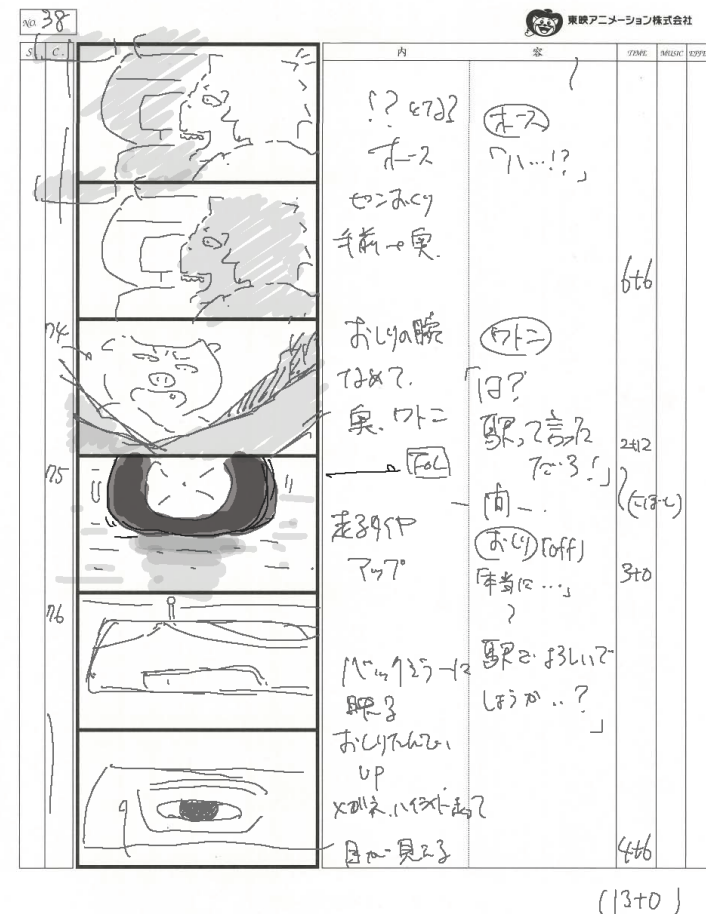 No. 38
東映アニメーション株式会社
S. C. 内 容 TIME MUSIC
!?となる
ホース
ピン送り
手前→奥.
ホース
「ハ…!?」
6+6
74
おしりの腕
なめて.
奥.ワトニ
ワトニ
「は?
駅って言った
だろ!」
2+12
75
F.O.L
走るタイヤ
アップ
間
おしり「off」
「本当に…」
3+0
76
バックミラーに
映る
おしりたんてい
UP
目が見える
駅でよろしいで
しょうか..?
」
4+6
(13+0)